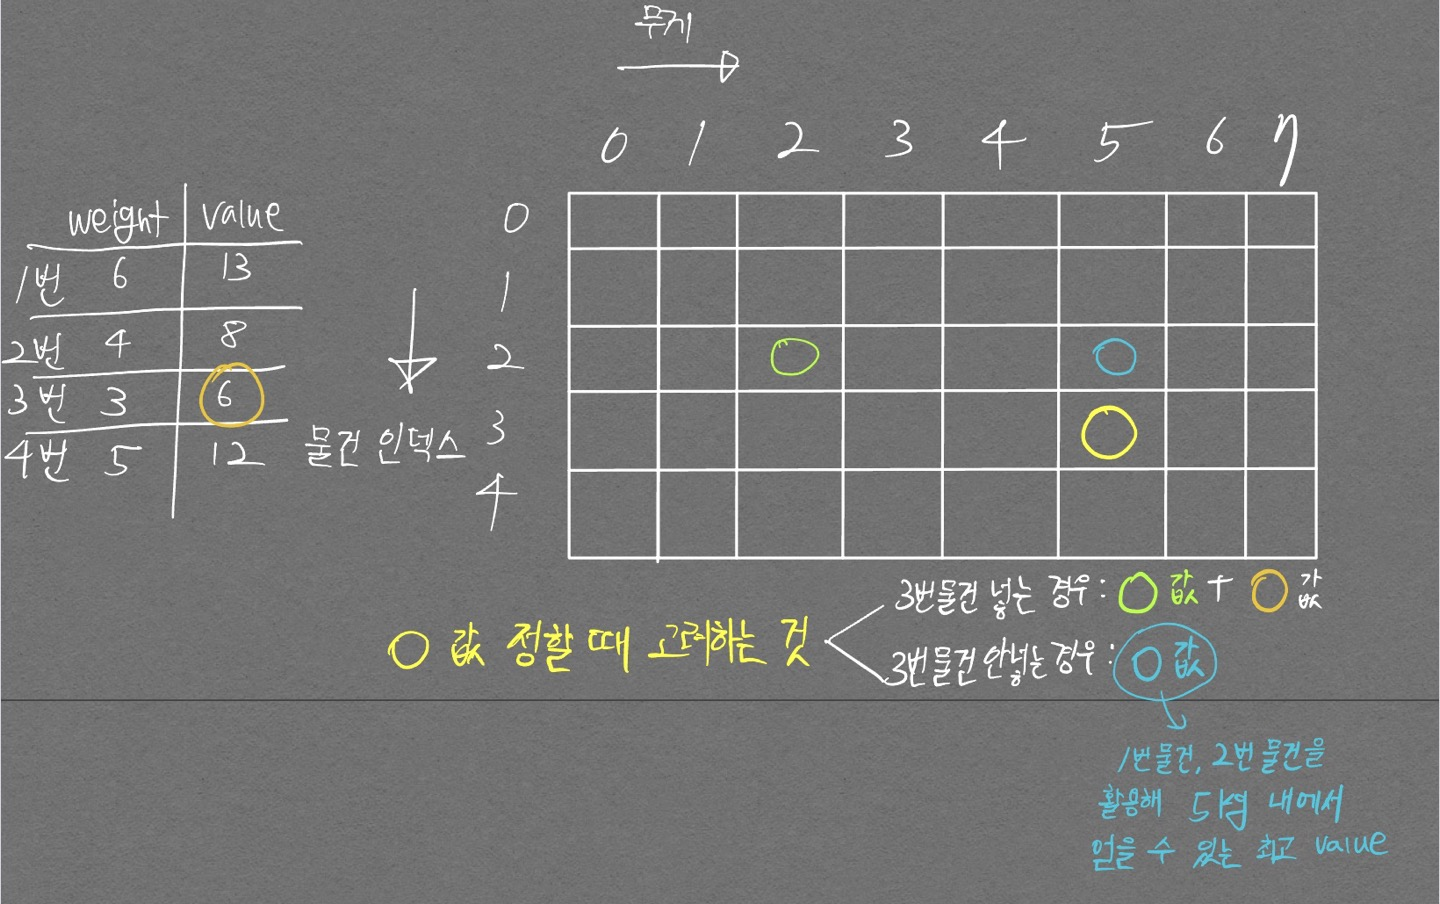 무게
0 1 2 3 4 5 6 7
weight value
1번 6 13
2번 4 8
3번 3 6
4번 5 12
물건 인덱스
0
1
2
3
4
3번물건 넣는 경우 : 값 + 값
값 정할 때 고려하는 것
3번물건 안넣는 경우 : 값
1번물건, 2번 물건을
활용해 5kg 내에서
얻을 수 있는 최고 value